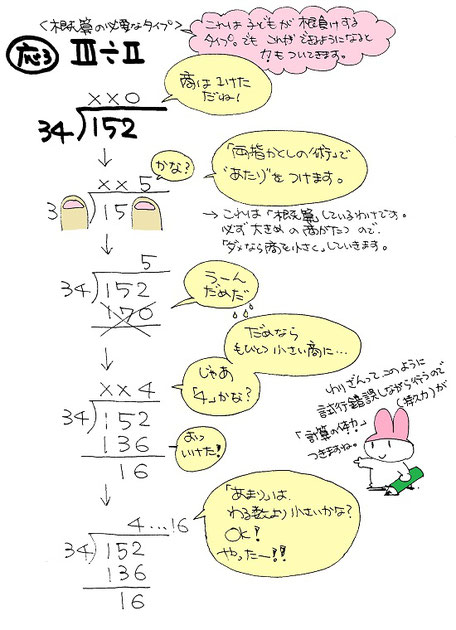 <概算の必要なタイプ>
これは子どもが根負けする
タイプ。でもこれができるようになると
力もついてきます。
応3 Ⅲ÷Ⅱ
商は1けた
だね!
××0
34)152
↓
かな?
「両指かくしの術」で
"あたり"をつけます。
××5
3 )15
→これは「概算」しているわけです。
必ず大きめの商がたつので、
「ダメなら商を小さく」していきます。
↓
5
34)152
170
うーん
だめだ
だめなら
もひとつ小さい商に…
↓
じゃあ
「4」かな?
××4
34)152
136
16
おっ
いけた!
わりざんってこのように
試行錯誤しながら行うので
「計算の体力」(持久力)が
つきますね。
↓
「あまり」は、
わる数より小さいかな?
OK!
やったー!!
4…16
34)152
136
16